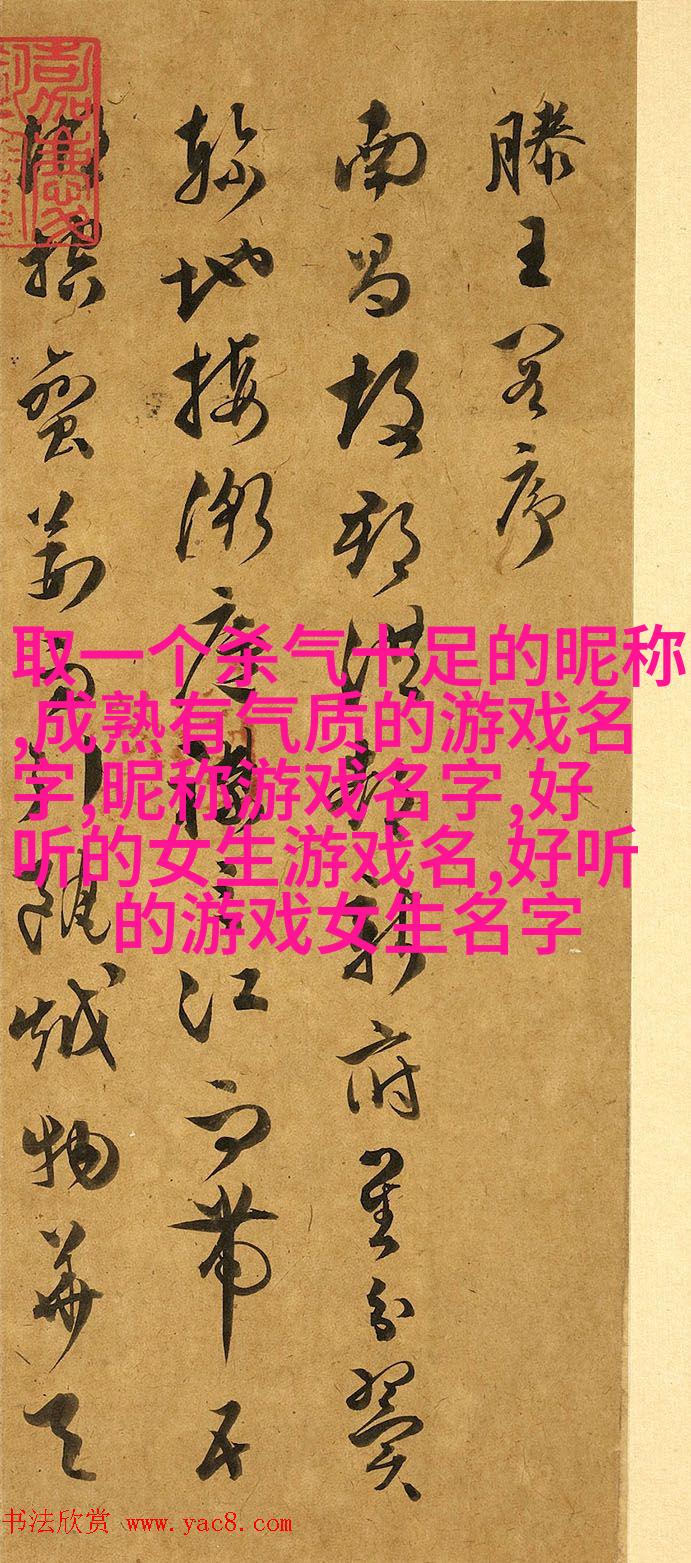 滕王閣序
南昌故郡洪都新府星分翼
軫地接衡廬襟三江而帶五
湖控蠻荆而引甌越物華天
取一个杀气十足的昵称
,成熟有气质的游戏名
字,昵称游戏名字,好
听的女生游戏名,好听
的游戏女生名字
书法欣赏 www.yac8.com